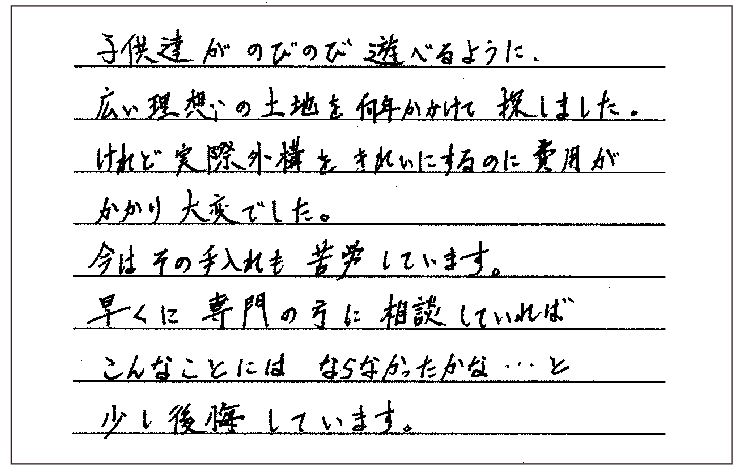 子供達がのびのび遊べるように、
広い理想の土地を何年かかけて探しました。
けれど実際外構をきれいにするのに費用が
かかり大変でした。
今はその手入れも苦労しています。
早くに専門の方に相談していれば
こんなことにはならなかったかな…と
少し後悔しています。